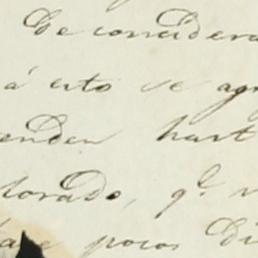 Se considera
á esto se agr
enden hast
lorado, q.e
pocos Di